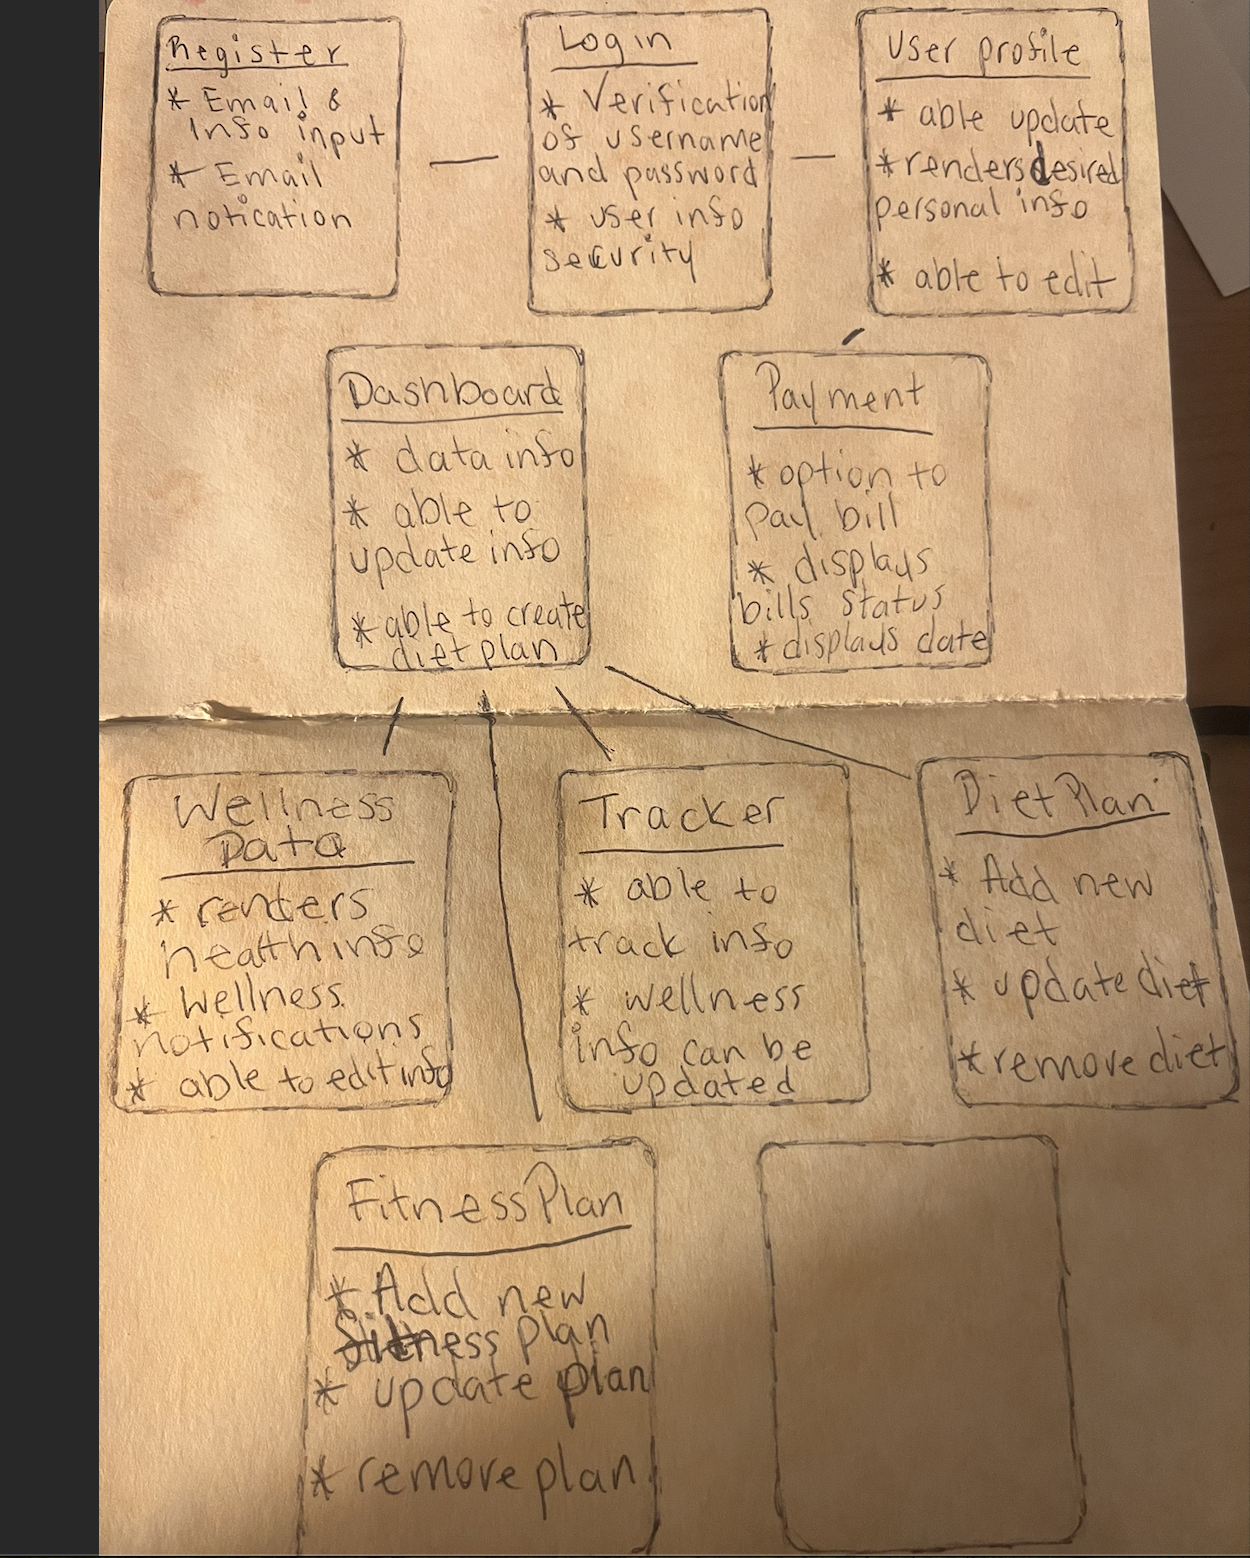 Register
* Email &
Info input
* Email
notication
Login
* Verification
of username
and password
* user info
security
User profile
* able update
* renders desired
personal info
* able to edit
Dashboard
* data info
* able to
update info
* able to create
diet plan
Payment
* option to
pay bill
* displays
bills status
* displays date
Wellness
Data
* renders
health info
* wellness
notifications
* able to edit info
Tracker
* able to
track info
* wellness
info can be
updated
Diet Plan
* Add new
diet
* update diet
* remove diet
Fitness Plan
* Add new
fitness plan
* update plan
* remove plan